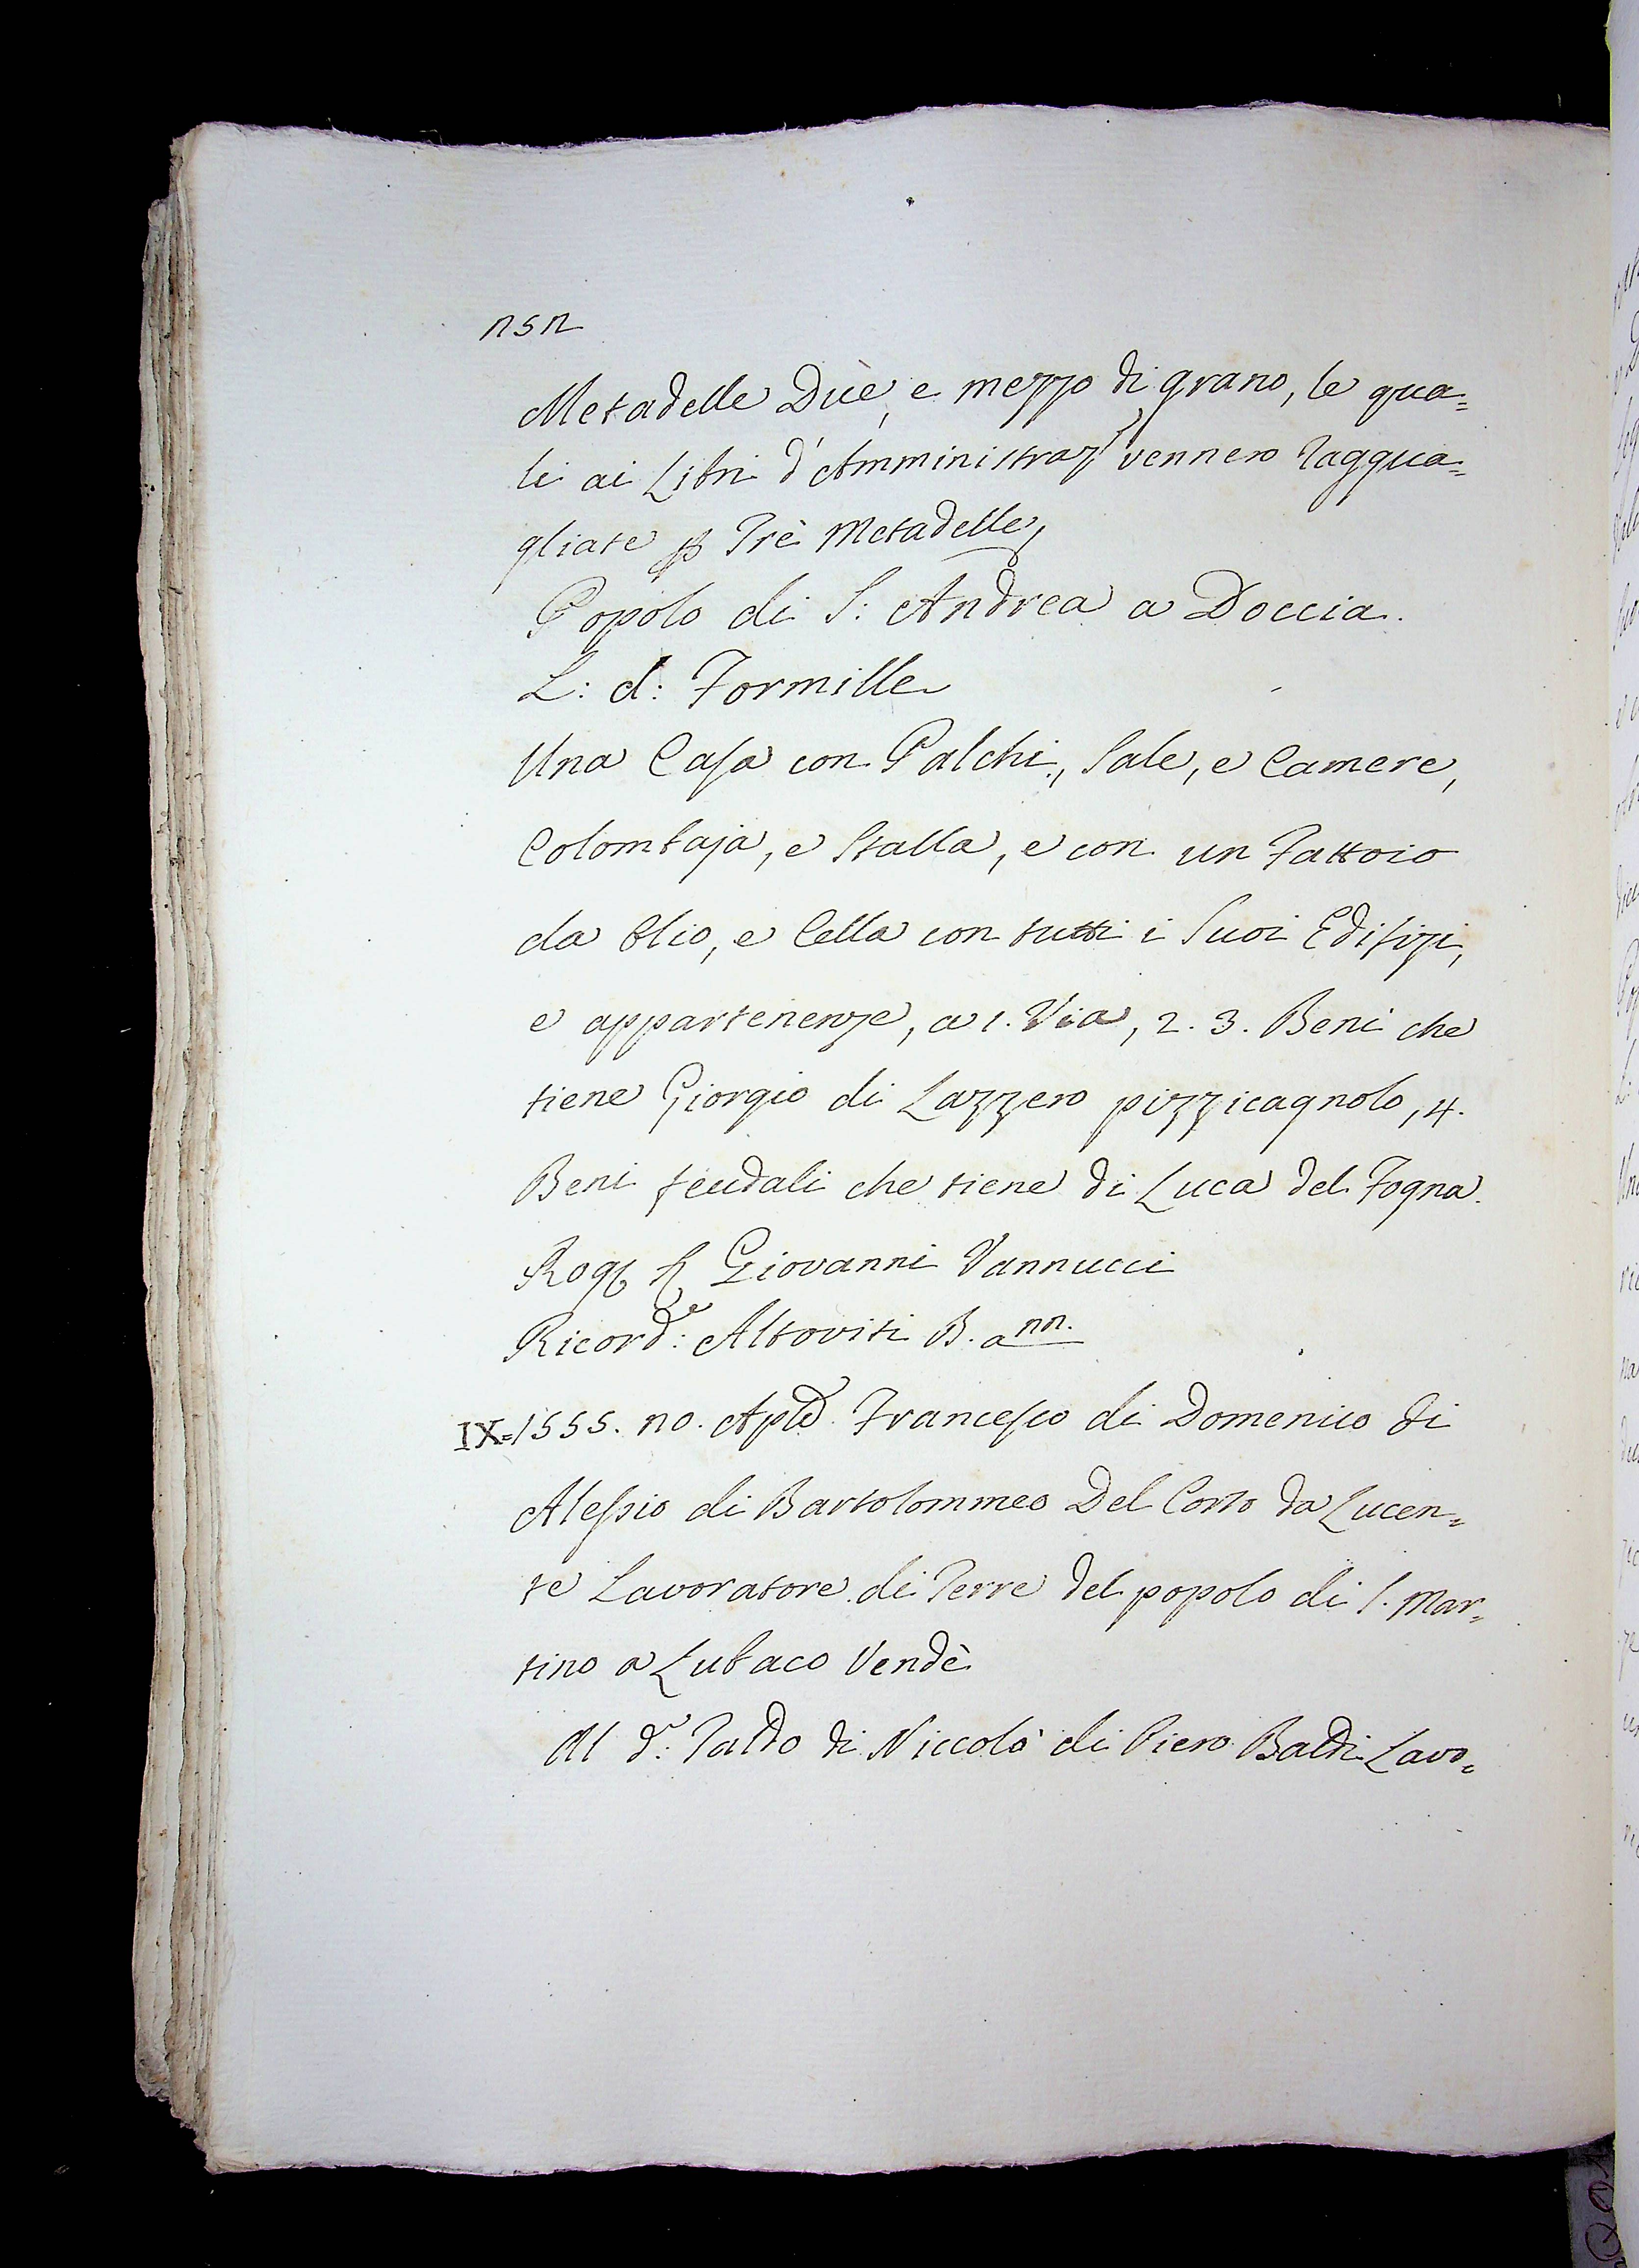 Metadelle Due, e mezzo di grano, le qua=
li ai Libri d'Amministraz. vennero ragqua=
gliate p Trè Metadelle,
Popolo di S: Andrea a Doccia.
L: d: Formille
Una Casa con Palchi, Sale, e Camere,
Colombaja, e Stalla, e con un Fattoio
da Olio, e Cella con tutti i Suoi Edifizi,
e appartenenze, a 1. Via, 2. 3. Beni che
tiene Giorgio di Lazzero pizzicagnolo, 4.
Beni feudali che tiene di Luca del Fogna.
Rog. Giovanni Vannucci
Ricord.e: Altoviti B. a nn.
IX=1555. Francesco di Domenico di
Alessio di Bartolommeo Del Corso da Lucen=
te Lavoratore di Terre del popolo di S. Mar=
tino a Lubaco Vendè
Al d.o: Taldo di Niccolò di Piero Baldi Lavo=